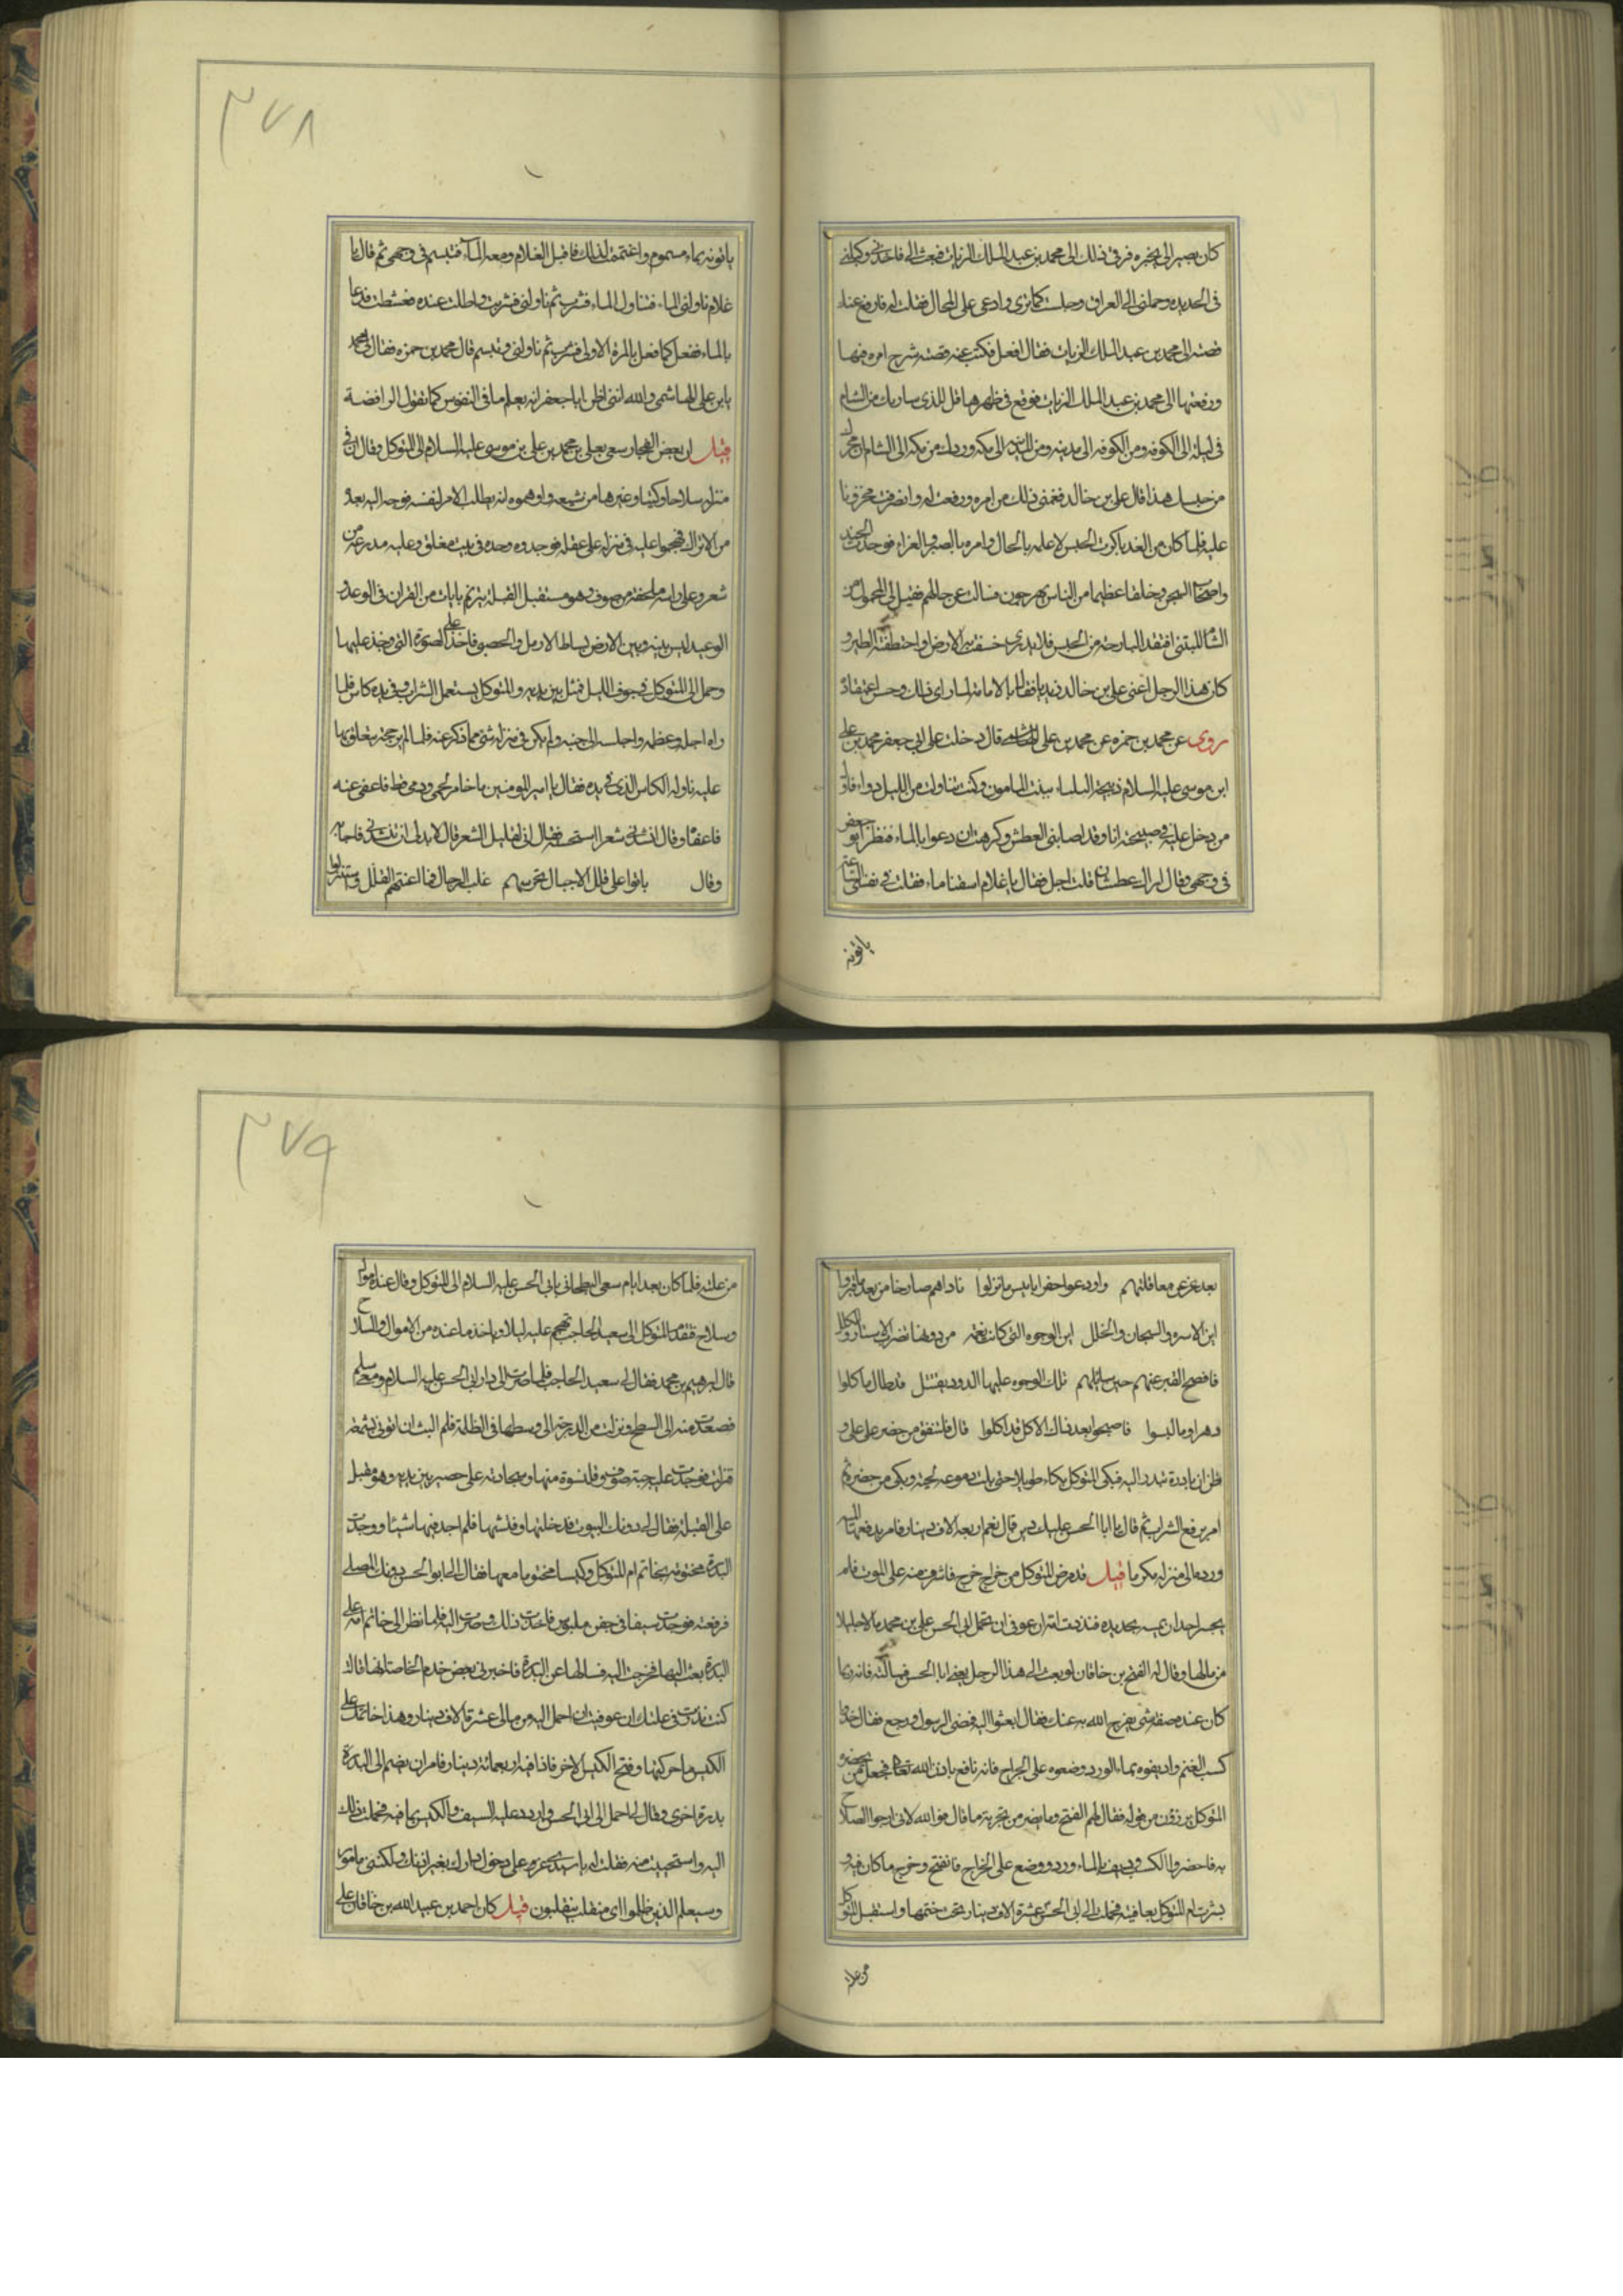 كان يصير الى يخبره فرقى ذلك الى محمد بن عبد الملك الزيات فبعث الى فاخذنى وكبلنى
فى الحديد وحملنى الى العراق وحبلست كما ترى وادعى على المحال فقلت له فارفع عنك
قصته الى محمد بن عبد الملك الزيات فقال افعل فكتب عنه قصته شرح امره فيها
ورفعتها الى محمد بن عبد الملك الزيات فوقع فى ظهرها قل للذى ساربك من الشام
فى ليلة الى الكوفه ومن الكوفه الى مدينه ومن المدينه الى مكه وردك من مكه الى الشام ان يخرجك
من حبسك هذا قال على بن خالد فغمنى ذلك من امره ورفعت له وانصرفت محزونا
عليه فلما كان من الغد باكرت الحبس لاعلمه بالحال وامره بالصبر والعزاء فوجدت الجند
واصحاب السجن وخلقا عظيما من الناس يهرجون فسالت عن حالهم فقيل لى المحمول من
الشام المتنبى افتقد البارحة من الحبس فلا يدرى خسفت به الارض او اختطفته الطير و
كان هذا الرجل اعنى على بن خالد زيديا فقال بالامامة لما راى ذلك وحسن اعتقاده
روى عن محمد بن حمزه عن محمد بن على الهاشمى قال دخلت على ابى جعفر محمد بن على
ابن موسى عليه السلام ذبيحة البلساء ببنت المامون وكنت تناولت من الليل دواء فاول
من دخل عليه فى صبيحته انا وقد اصابنى العطش وكرهت ان دعوا بالماء فنظر ابو جعفر
فى وجهى وقال اراك عطشان قلت اجل فقال يا غلام اسقنا ماء فقلت فى نفسى الساعة
ياتونه
٣٧٨
ياتونه بماء مسموم واغتممت لذلك فاقبل الغلام ومعه الماء فتبسم فى وجهى ثم قال يا
غلام ناولنى الماء فتناول الماء فشرب ثم ناولنى فشربت واطلت عنده فعشطت فدعا
بالماء ففعل كما فعل بالمرة الاولى فشرب ثم ناولنى وتبسم قال محمد بن حمزه فقال لى محمد
يا بن على الهاشمى والله اننى اظن ابا جعفر انه يعلم ما فى النفوس كما تقول الرافضة
قيل ان بعض الفجار سعى بعلى بن محمد بن على بن موسى عليه السلام الى المتوكل وقال ان فى
منزله سلاحا وكتبا وغيرها من شيعه واوهموه انه يطلب الامر لنفسه فوجه اليه بعدة
من الاتراك فهجموا عليه فى منزله على غفلة فوجدوه وحده فى بيت مغلق وعليه مدرعة من
شعر وعلى راسه ملحفة من صوف وهو مستقبل القبلة يترنم بايات من القران فى الوعد و
الوعيد ليس بينه وبين الارض بساط الا رمل والحصى فاخذ على الصورة التى وجد عليها
وحمل الى المتوكل فى جوف الليل فمثل بين يديه والمتوكل يستعمل الشراب وفى يده كاس فلما
راه اجله وعظمه واجلسه الى جنبه ولم يكن فى منزله شئ مما ذكر عنه فلما لم ير حجة يتعلق بها
عليه ناوله الكاس الذى فى يده فقال يا امير المومنين ما خامر لحمى ودمى قط فاعفى عنه
فاعفاه وقال انشدنى شعرا استحسنه فقال انى لقليل الشعر قال لابد لى ان تنشدنى فاجابه
وقال باتوا على قلل الاجبال تحرسهم غلب الرجال فما اغنتهم القلل واستنزلوا
بعد عز عن معاقلهم واودعوا حفرا يا بئس ما نزلوا ناداهم صارخا من بعد ما قبروا
اين الاسرة والتيجان والحلل اين الوجوه التى كانت منعمة من دونها تضرب الاستار والكلل
فافصح القبر عنهم حين سايلهم تلك الوجوه عليها الدود يقتتل قد طال ما اكلوا
دهرا وما لبسوا فاصبحوا بعد ذلك الاكل قد اكلوا قال فاشفق من حضر على على و
ظن ان بادرة تبدر اليه فبكى المتوكل بكاء طويلا حتى بلت دموعه لحيته وبكى من حضره ثم
امر برفع الشراب ثم قال يا ابا الحسن عليك دين قال نعم اربعة الاف دينار فامر بدفعها اليه
ورده الى منزله مكرما قيل قد مرض المتوكل من خراج خرج فاشرف منه على الموت فلم
يجسر احدان يمسه بحديده فنذرت امه ان عوفى ان تحمل الى ابى الحسن على بن محمد مالا جليلا
من مالها وقال له الفتح بن خاقان لو بعثت الى هذا الرجل يعنى ابا الحسن فسالته فانه ربما
كان عنده صفة شئ يفرج الله به عنك فقال ابعثوا اليه فمضى الرسول ورجع فقال خذوا
كسب الغنم واديفوه بماء الورد وضعوه على الخراج فانه نافع باذن الله تعالى فجعل من بحضرة
المتوكل يهزؤن من قوله فقال لهم الفتح وما يضر من تجربة ما قال فوالله لانى ارجوا الصلاح
به فاحضروا الكسب وديف بالماء ورد ووضع على الخراج فانفتح وخرج ما كان فيه و
بشرت ام المتوكل بعافيته فحملت الى ابى الحسن عشرة الاف دينار تحت ختمها واستقبل المتوكل
من علته
٣٧٩
من علته فلما كان بعد ايام سعى البطحانى بابى الحسن عليه السلام الى المتوكل وقال عنده اموال
وسلاح فتقدم المتوكل الى سعيد الحاجب تهجم عليه ليلا وياخذ ما عنده من الاموال والسلاح
قال ابرهيم بن محمد فقال لى سعيد الحاجب فلما صرت الى دار ابى الحسن عليه السلام ومعى سلم
فصعدت منه الى السطح ونزلت من الدرجة الى وسطها فى الظلمة فلم البث ان اتونى بشمعة
فنزلت فوجدت عليه جبة صوف وقلنسوة منها وسجادته على حصير بين يديه وهو مقبل
على القبلة فقال لى دونك البيوت فدخلتها وفتشتها فلم اجد فيها شيئا ووجدت
البدرة مختومة بخاتم ام المتوكل وكيسا مختوما معها فقال لى ابو الحسن دونك المصلى
فرفعته فوجدت سيفا فى جفن ملبوس فاخذت ذلك وصرت اليه فلما نظر الى خاتم امه على
البدرة بعث اليها فخرجت اليه فسالها عن البدرة فاخبرنى بعض خدم الخاصة انها قالت
كنت نذرت فى علتك ان عوفيت ان احمل اليه من مالى عشرة الاف دينار وهذا خاتمك على
الكيس ما حركها وفتح الكيس الاخر فاذا فيه اربعمائة دينار فامر ان يضم الى البدرة
بدرة اخرى وقال لى احمل الى ابى الحسن واردد عليه السيف والكيس بما فيه فحملت ذلك
اليه واستحييت منه فقلت له يا سيدى عز على دخول دارك بغير اذنك ولكننى مامور
وسيعلم الذين ظلموا اى منقلب ينقلبون قيل كان احمد بن عبيد الله بن خاقان على